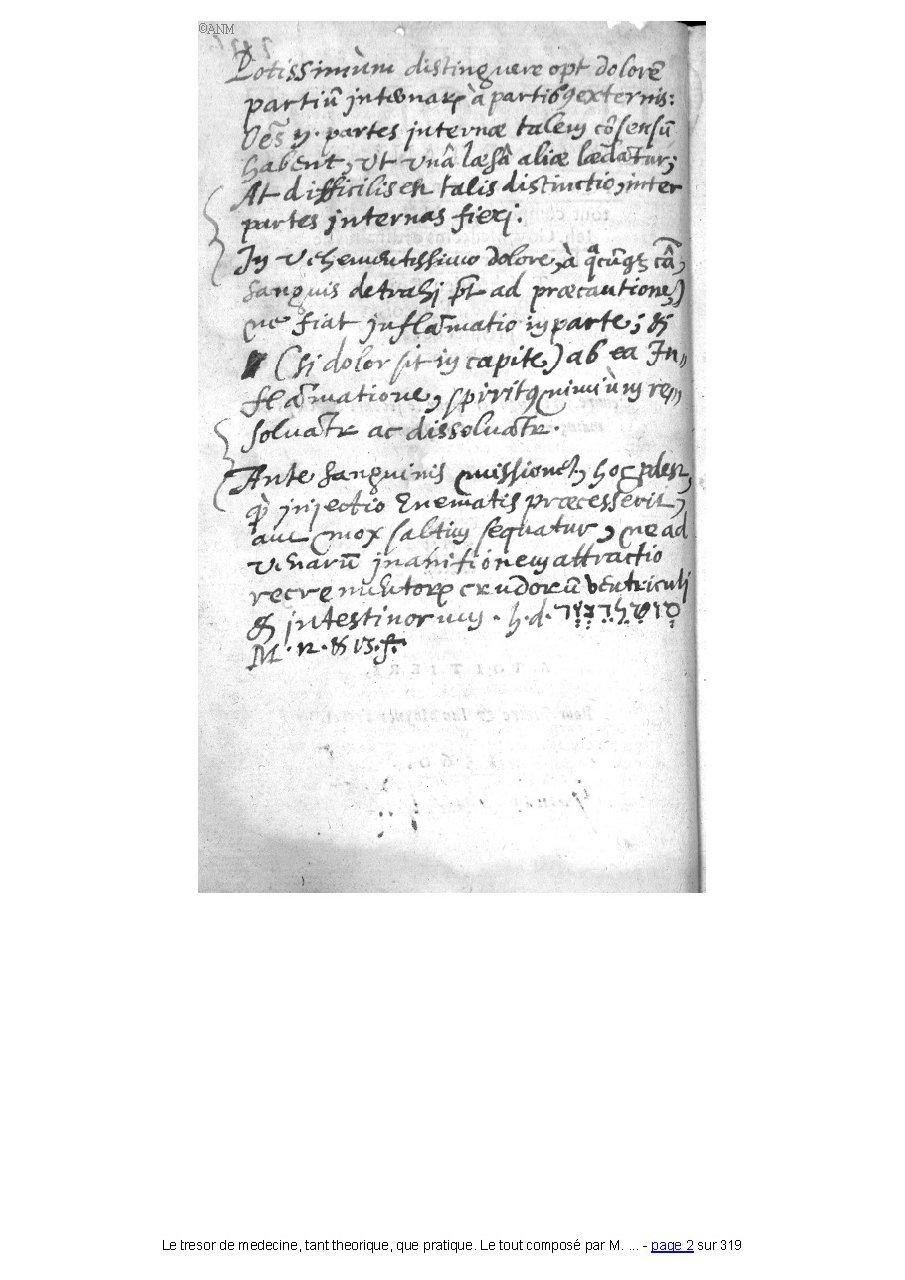 ©ANM
Potissimùm distinguere opt dolorē
partiū internarꝝ à partibꝰ externis:
Oēs n. partes internæ talem cōsensū
habent, ut unâ læsâ aliæ lædātur;
At difficilis est talis distinctio, inter
partes internas fieri.
In vehementissimo dolore, à cā,
sanguis detrahi pt̄ ad præcautionē,
ne fiat inflāmatio in parte; &
(si dolor sit in capite) ab ea In„
flāmatione, spiritꝰ nimiùm re„
solvātr ac dissolvātr.
Ante sanguinis missionem, hoc pdest,
injectio Enematis præcesserit,
aut mox saltim sequatur, ne ad
venarū inanitionem attractio
recrementorꝝ crudorū ventriculi
& intestinorum. h. d.
M. n. & 15. f.
Le tresor de medecine, tant theorique, que pratique. Le tout composé par M. ... - page 2 sur 319